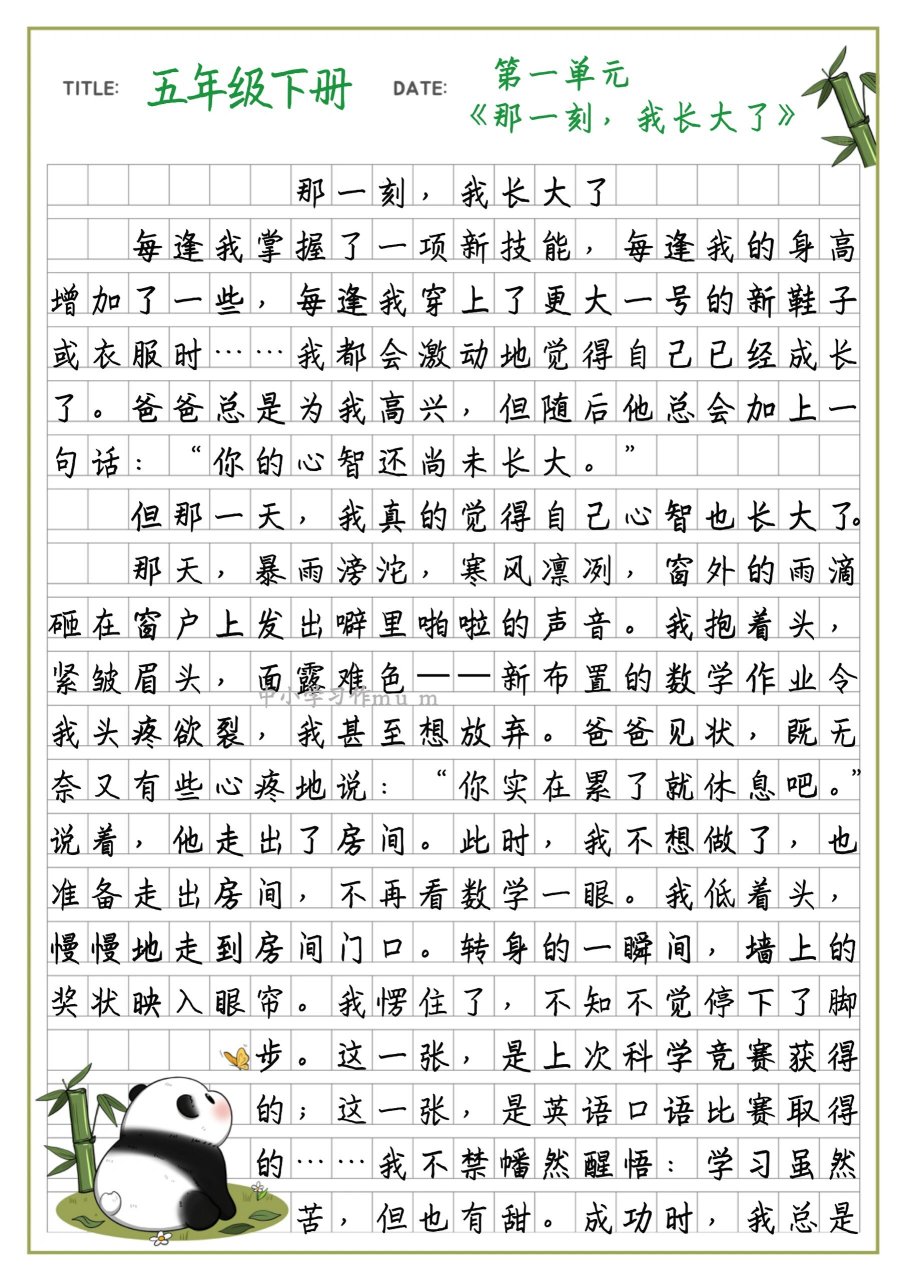 TITLE: 五年级下册 DATE: 第一单元
《那一刻，我长大了》
那一刻，我长大了
每逢我掌握了一项新技能，每逢我的身高
增加了一些，每逢我穿上了更大一号的新鞋子
或衣服时……我都会激动地觉得自己已经成长
了。爸爸总是为我高兴，但随后他总会加上一
句话：“你的心智还尚未长大。”
但那一天，我真的觉得自己心智也长大了。
那天，暴雨滂沱，寒风凛冽，窗外的雨滴
砸在窗户上发出噼里啪啦的声音。我抱着头，
紧皱眉头，面露难色——新布置的数学作业令
中小学习作mum
我头疼欲裂，我甚至想放弃。爸爸见状，既无
奈又有些心疼地说：“你实在累了就休息吧。”
说着，他走出了房间。此时，我不想做了，也
准备走出房间，不再看数学一眼。我低着头，
慢慢地走到房间门口。转身的一瞬间，墙上的
奖状映入眼帘。我愣住了，不知不觉停下了脚
步。这一张，是上次科学竞赛获得
的；这一张，是英语口语比赛取得
的……我不禁幡然醒悟：学习虽然
苦，但也有甜。成功时，我总是